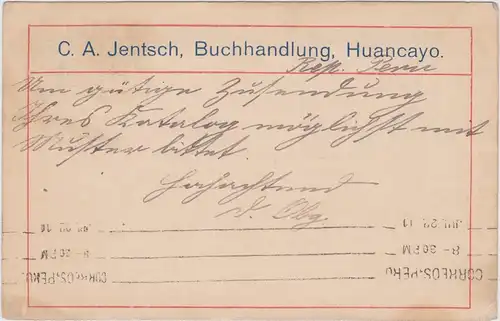 C. A. Jentsch, Buchhandlung, Huancayo.
Rep. Peru
Um gütige Zusendung
Ihres Katalog möglichst mit
Muster bittet.
Hochachtend
d. Obg.
8-30PM
8-30PM
CORREOS-PERU.
CORREOS-PERU